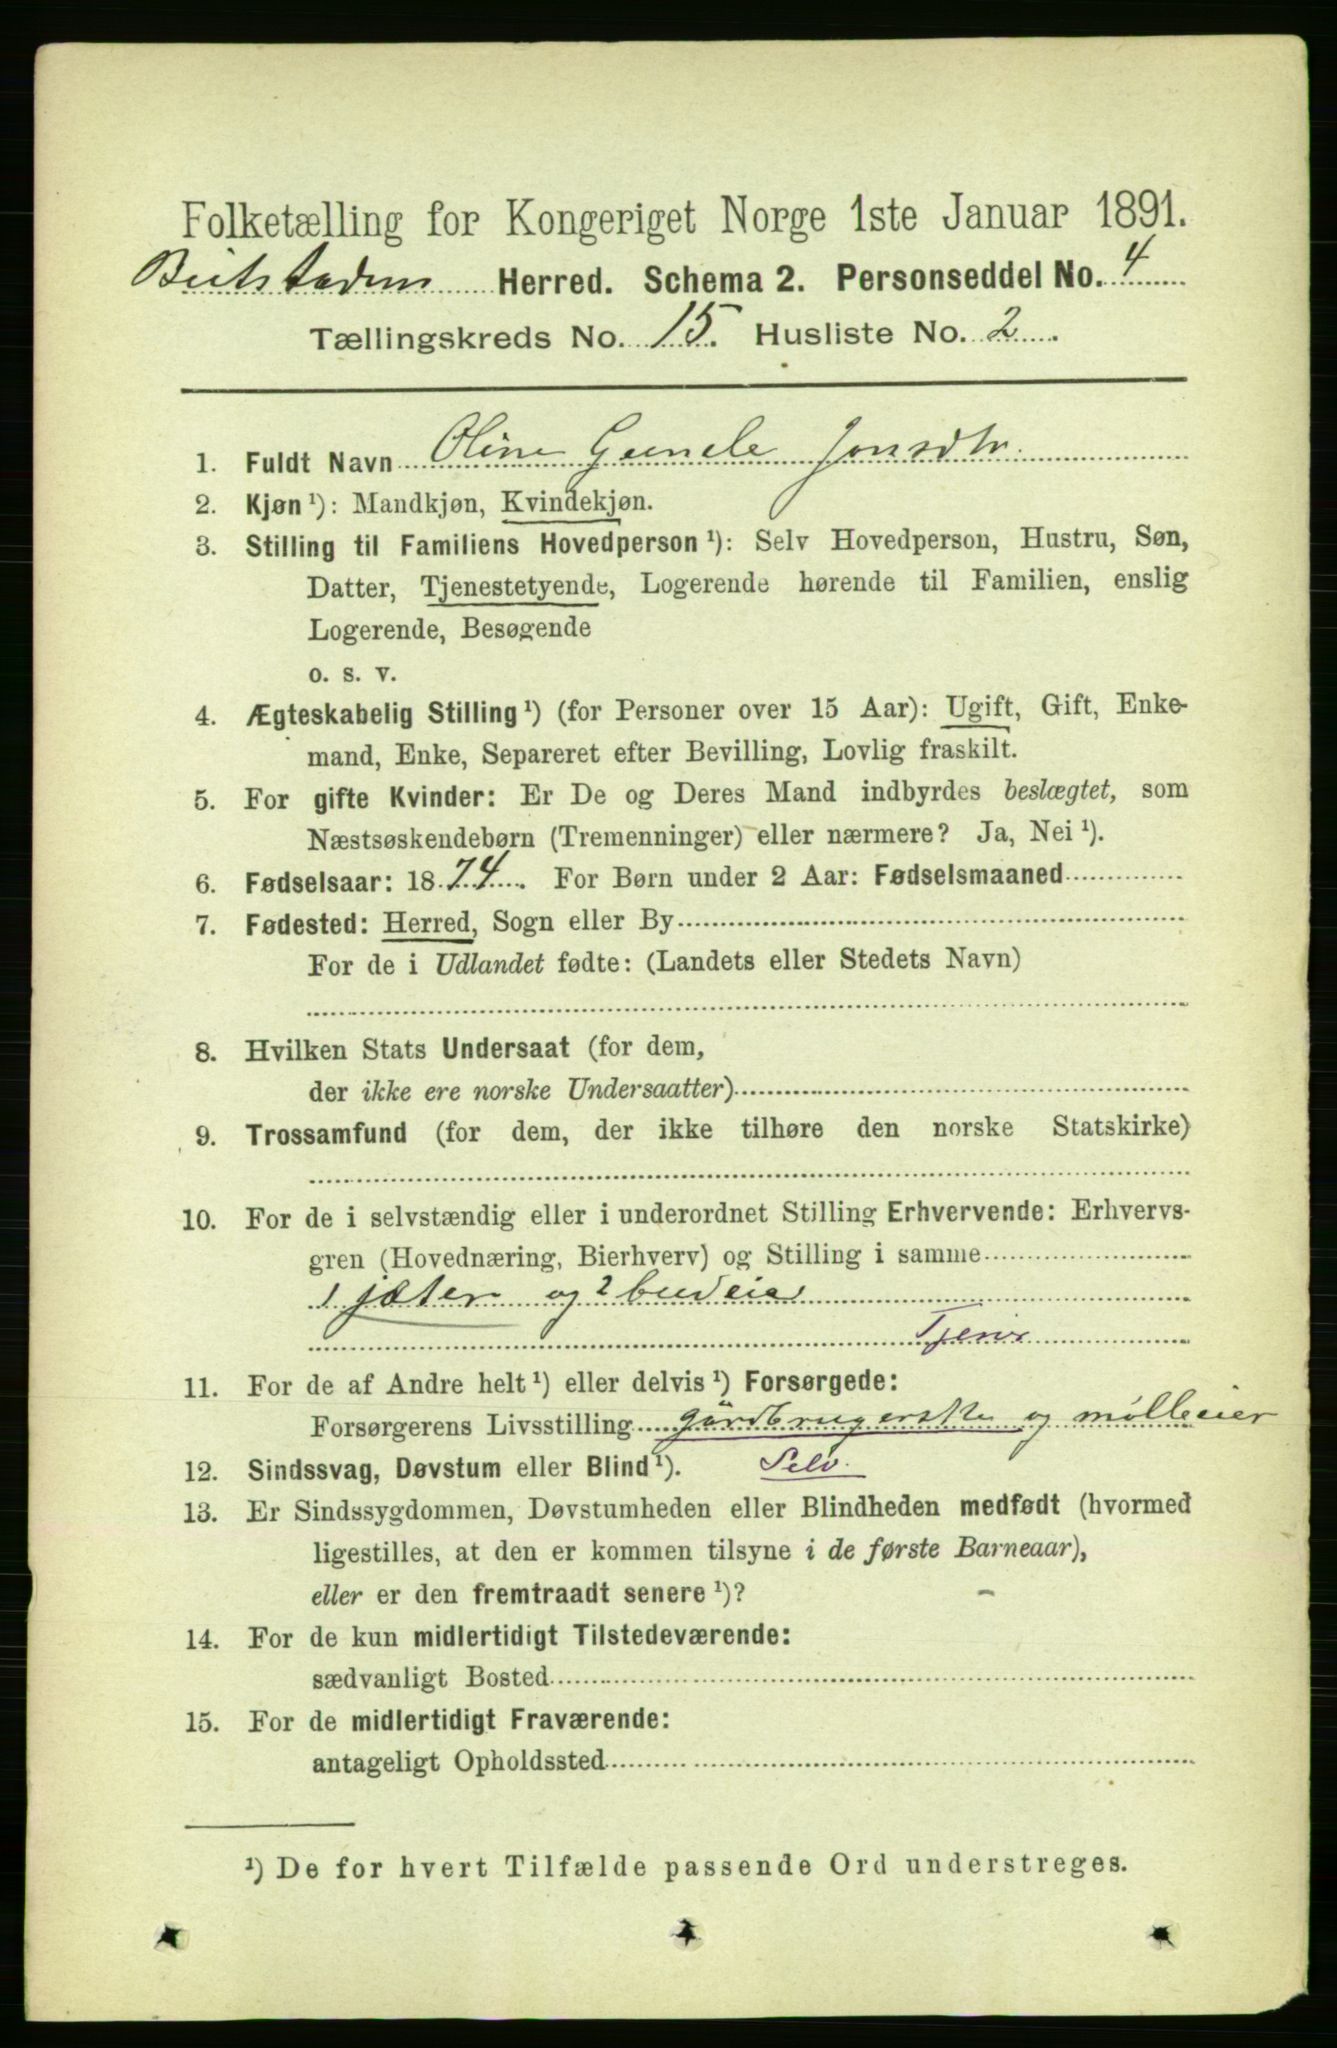 Folketælling for Kongeriget Norge 1ste Januar 1891.
Beitstaden Herred. Schema 2. Personseddel No. 4
Tællingskreds No. 15. Husliste No. 2
1. Fuldt Navn Oline Jonsdtr.
2. Kjøn ¹): Mandkjøn, Kvindekjøn.
3. Stilling til Familiens Hovedperson ¹): Selv Hovedperson, Hustru, Søn,
Datter, Tjenestetyende, Logerende hørende til Familien, enslig
Logerende, Besøgende
o. s. v.
4. Ægteskabelig Stilling ¹) (for Personer over 15 Aar): Ugift, Gift, Enke-
mand, Enke, Separeret efter Bevilling, Lovlig fraskilt.
5. For gifte Kvinder: Er De og Deres Mand indbyrdes beslægtet, som
Næstsøskendebørn (Tremenninger) eller nærmere? Ja, Nei ¹).
6. Fødselsaar: 1874. For Børn under 2 Aar: Fødselsmaaned
7. Fødested: Herred, Sogn eller By
For de i Udlandet fødte: (Landets eller Stedets Navn)
8. Hvilken Stats Undersaat (for dem,
der ikke ere norske Undersaatter)
9. Trossamfund (for dem, der ikke tilhøre den norske Statskirke)
10. For de i selvstændig eller i underordnet Stilling Erhvervende: Erhvervs-
gren (Hovednæring, Bierhverv) og Stilling i samme
1 jæter og 2 budeie
11. For de af Andre helt ¹) eller delvis ¹) Forsørgede:
Forsørgerens Livsstilling gårdbrugerske og mølleeier
12. Sindssvag, Døvstum eller Blind ¹). Selv.
13. Er Sindssygdommen, Døvstumheden eller Blindheden medfødt (hvormed
ligestilles, at den er kommen tilsyne i de første Barneaar),
eller er den fremtraadt senere ¹)? –
14. For de kun midlertidigt Tilstedeværende:
sædvanligt Bosted
15. For de midlertidigt Fraværende:
antageligt Opholdssted
¹) De for hvert Tilfælde passende Ord understreges.